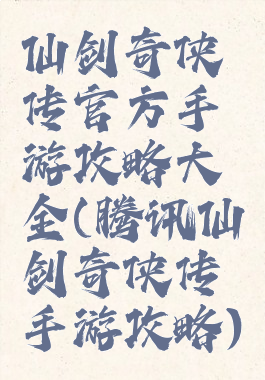 仙剑奇侠
传官方手
游攻略大
全(腾讯仙
剑奇侠传
手游攻略)